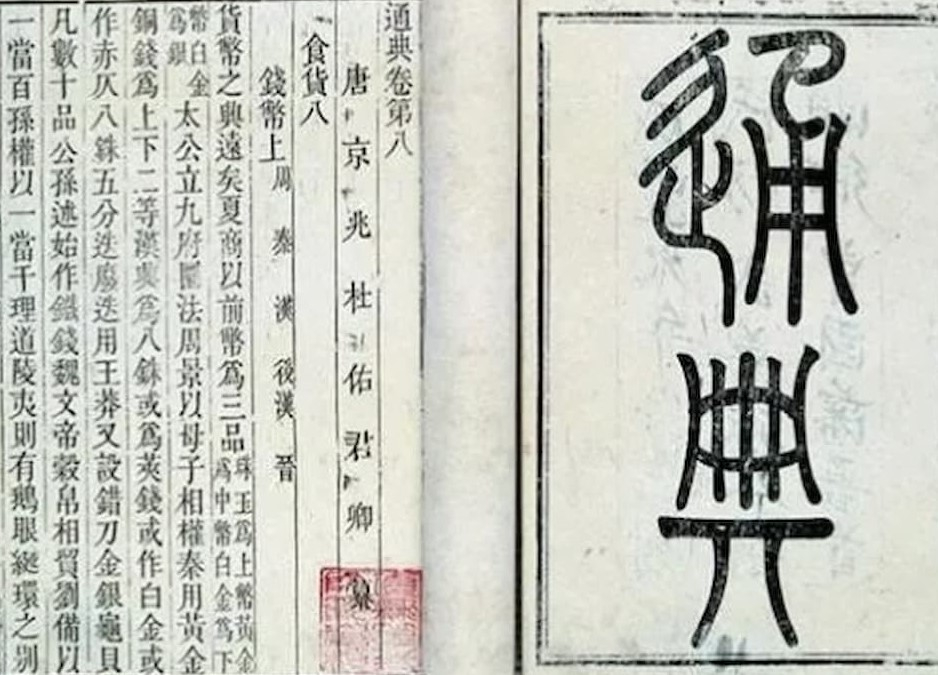 通典
通典卷第八
唐京兆杜佑君卿纂
食貨八
錢幣上 周 秦 漢 後漢 晉
貨幣之典遠矣夏商以前幣爲三品珠玉爲上幣黃金爲中幣白金爲下
幣白金爲銀太公立九府圜法周景以母子相權秦用黃金
銅錢爲上下二等漢興爲八銖或爲莢錢或作白金或
作赤仄八銖五分迭廢迭用王莽又設錯刀金銀龜貝
凡數十品公孫述始作鐵錢魏文帝穀帛相貿劉備以
一當百孫權以一當千理道陵夷則有鵝眼綖環之别